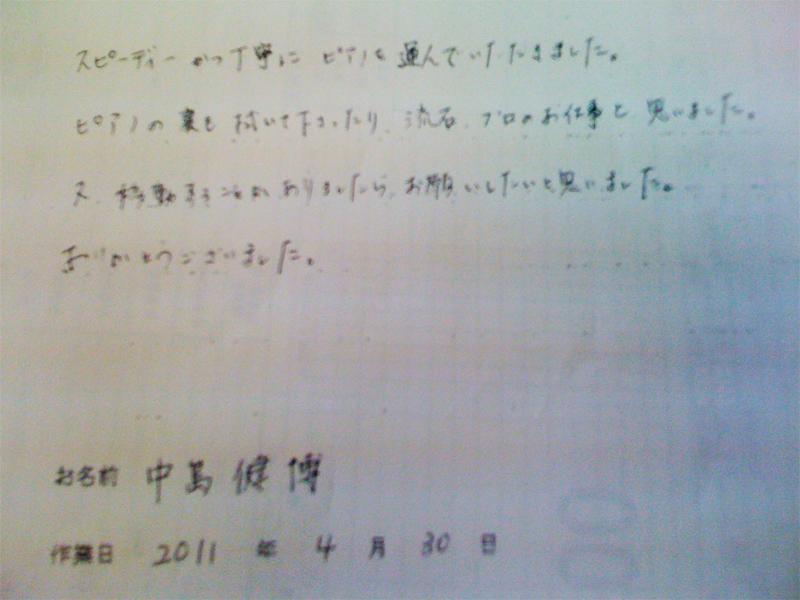 スピーディーかつ丁寧に ピアノを運んでいただきました。
ピアノの裏も拭いて下さったり、流石、プロのお仕事と思いました。
又、移動することがありましたら、お願いしたいと思いました。
ありがとうございました。
お名前 中島健博
作業日 2011 年 4 月 30 日